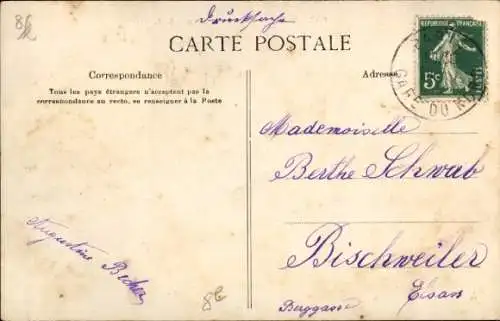 86
Drucksache
CARTE POSTALE
Correspondance
Tous les pays étrangers n'acceptent pas la
correspondance au recto, se renseigner à la Poste
Adresse
REPUBLIQUE FRANÇAISE
5c
GARE DU
Mademoiselle
Berthe Schwab
Bischweiler
Elsass
Berggasse
Augustine
86